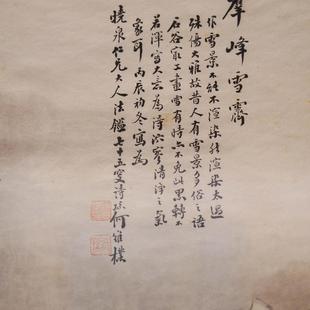 群峰雪霽
作雪景不能不渲染然渲染太過
殊傷大雅故昔人有雪景多俗之語
石谷最工畫雪有時亦不免此累轉不
若渾寫大意為詩沉寥清淨之氣
象耳丙辰初冬寫為
曉泉仁兄大人法鑑七十五叟詩孫何維樸